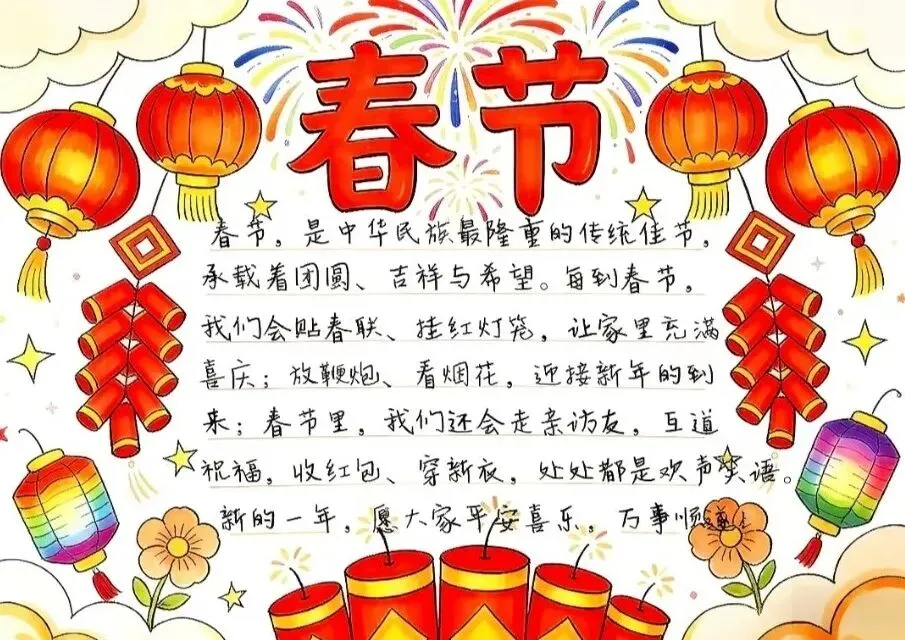 春节
春节，是中华民族最隆重的传统佳节，
承载着团圆、吉祥与希望。每到春节，
我们会贴春联、挂红灯笼，让家里充满
喜庆；放鞭炮、看烟花，迎接新年的到
来；春节里，我们还会走亲访友，互道
祝福，收红包、穿新衣，处处都是欢声笑语。
新的一年，愿大家平安喜乐，万事顺遂！